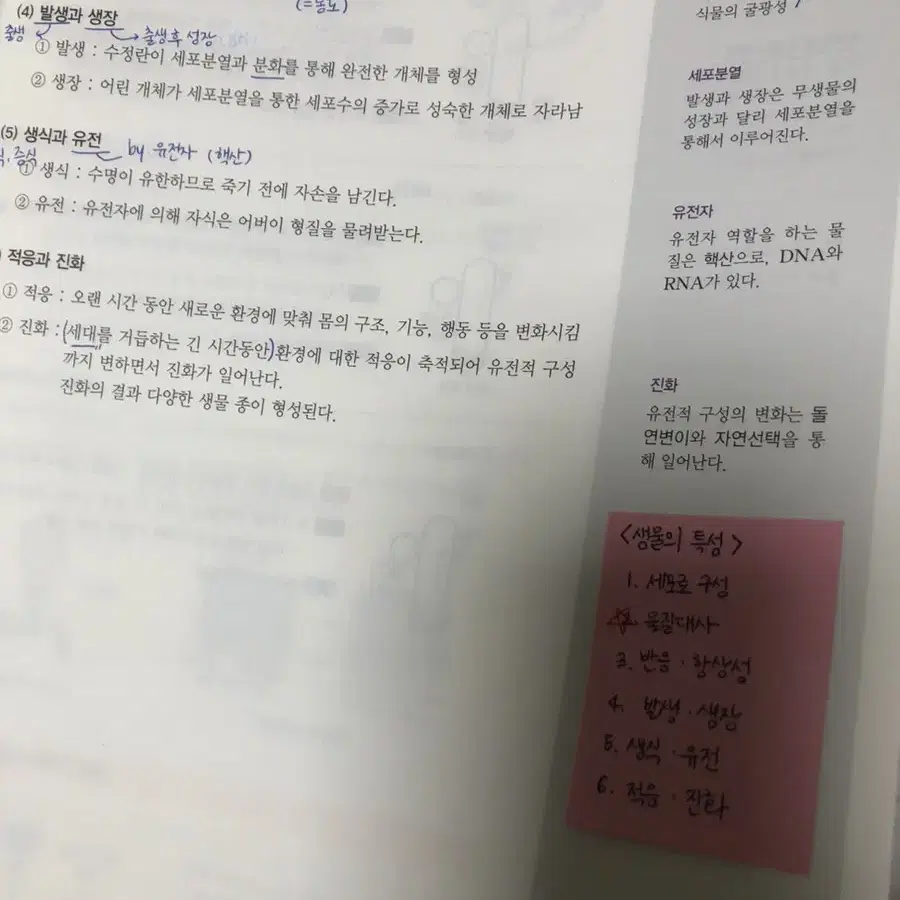 (=농도)
(4) 발생과 생장
출생후 성장
① 발생 : 수정란이 세포분열과 분화를 통해 완전한 개체를 형성
② 생장 : 어린 개체가 세포분열을 통한 세포수의 증가로 성숙한 개체로 자라남
(5) 생식과 유전
by 유전자 (핵산)
① 생식 : 수명이 유한하므로 죽기 전에 자손을 남긴다.
② 유전 : 유전자에 의해 자식은 어버이 형질을 물려받는다.
) 적응과 진화
① 적응 : 오랜 시간 동안 새로운 환경에 맞춰 몸의 구조, 기능, 행동 등을 변화시킴
② 진화 : (세대를 거듭하는 긴 시간동안) 환경에 대한 적응이 축적되어 유전적 구성
까지 변하면서 진화가 일어난다.
진화의 결과 다양한 생물 종이 형성된다.
식물의 굴광성
세포분열
발생과 생장은 무생물의
성장과 달리 세포분열을
통해서 이루어진다.
유전자
유전자 역할을 하는 물
질은 핵산으로, DNA와
RNA가 있다.
진화
유전적 구성의 변화는 돌
연변이와 자연선택을 통
해 일어난다.
<생물의 특성>
1. 세포로 구성
물질대사
3. 반응·항상성
4. 발생·생장
5. 생식·유전
6. 적응·진화